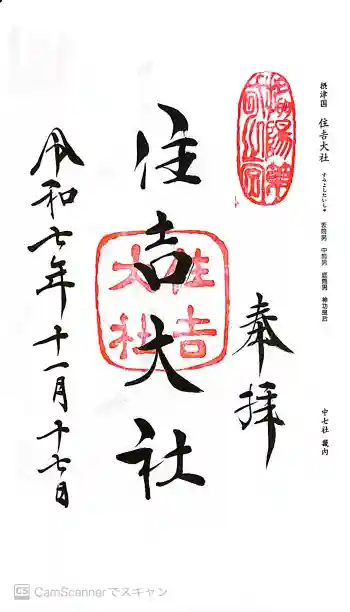 摂津国 住吉大社 すみよしたいしゃ 表筒男 中筒男 底筒男 神功皇后
中七社 畿内
奉拝
住吉大社
住吉大社
令和七年十一月十七日
CS CamScannerでスキャン